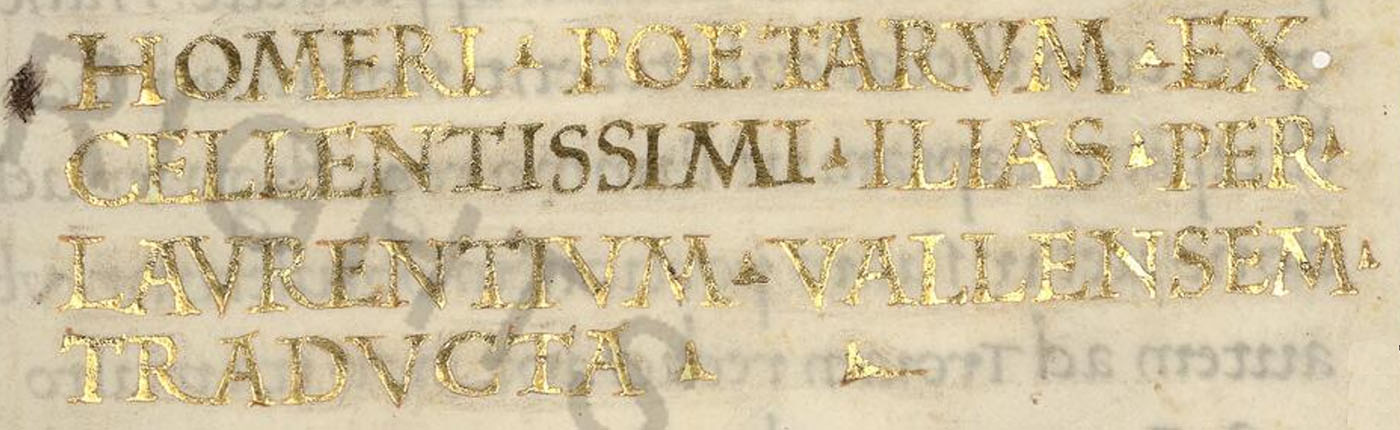 HOMERI · POETARVM · EX
CELLENTISSIMI · ILIAS · PER ·
LAVRENTIVM · VALLENSEM ·
TRADVCTA ·